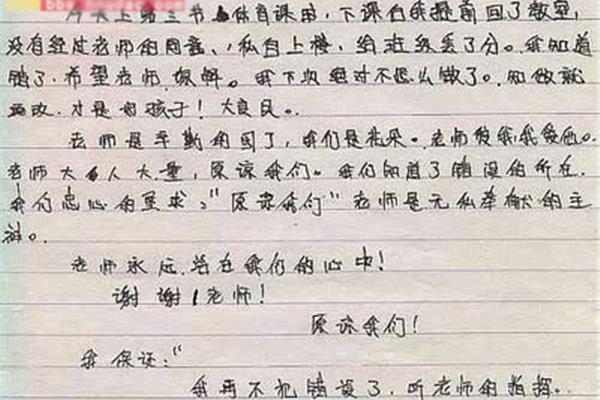 今天上第三节体育课时,下课后我提前回了教室,
没有经过老师的同意,私自上楼,给班级丢了分。我知道
错了,希望老师谅解。我下次绝对不这么做了。知错就
要改,才是好孩子!大良民。
老师是辛勤的园丁,我们是花朵。老师爱我,我爱他。
老师大人大量,原谅我们。我们知道了错误的所在,
我们忠心的要求:"原谅我们"老师是无私奉献的主
。
老师永远站在我们的心中!
谢谢!老师!
原谅我们!
我保证:"
我再不犯错误了,听老师的指挥。